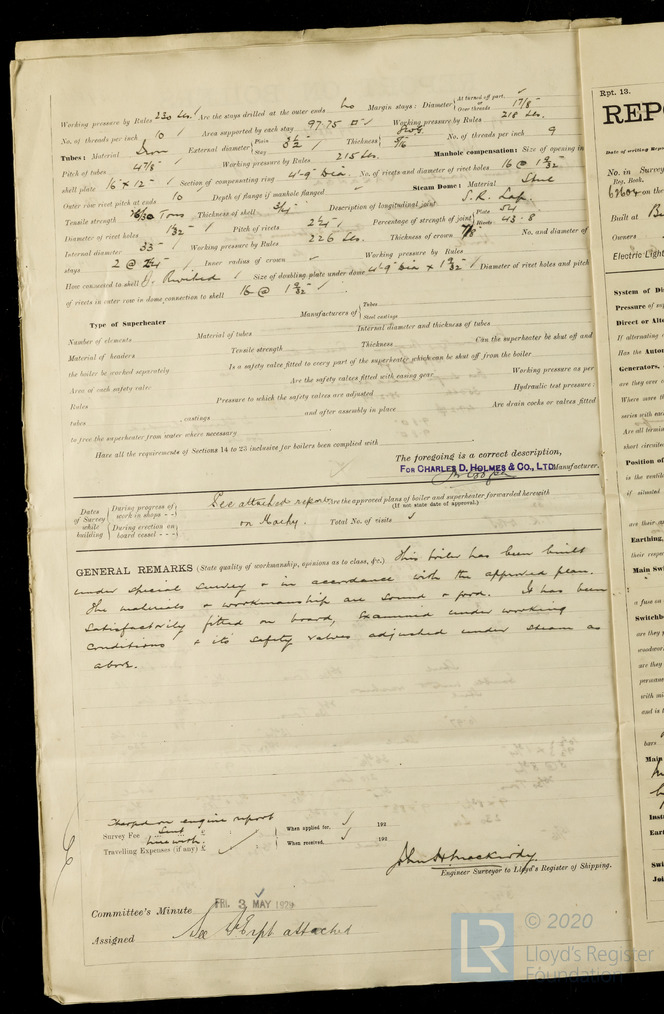 Working pressure by Rules 230 Lbs. Are the stays drilled at the outer ends No Margin stays: Diameter { At turned off part, Over threads 1 7/8" 
No. of threads per inch 10 Area supported by each stay 97.75 Working pressure by Rules 218 Lbs.
Tubes: Material Iron External diameter { Plain Stay 3 1/2" Thickness { 8WG 5/16 No. of threads per inch 9
Pitch of tubes 4 7/8" Working pressure by Rules 215 Lbs. Manhole compensation: Size of opening in
shell plate 16" x 12" Section of compensating ring 4'-9" Dia. No. of rivets and diameter of rivet holes 16 @ 1 9/32"
Outer row rivet pitch at ends 10 Depth of flange if manhole flanged Steam Dome: Material Steel
Tensile strength 26/30 Tons Thickness of shell 3/4" Description of longitudinal joint S.R. Lap.
Diameter of rivet holes 1 1/32" Pitch of rivets 2 1/4" Percentage of strength of joint { Plate 54 Rivets 43.8
Internal diameter 33" Working pressure by Rules 226 Lbs. Thickness of crown 7/8" No. and diameter of
stays 2 @ Inner radius of crown Working pressure by Rules
How connected to shell Riveted Size of doubling plate under dome 4'-9" Dia x 1 9/32" Diameter of rivet holes and pitch
of rivets in outer row in dome connection to shell 16 @ 1 9/32"
Type of Superheater Manufacturers of { Tubes Steel castings
Number of elements Material of tubes Internal diameter and thickness of tubes
Material of headers Tensile strength Thickness Can the superheater be shut off and
the boiler be worked separately Is a safety valve fitted to every part of the superheater which can be shut off from the boiler
Area of each safety valve Are the safety valves fitted with easing gear Working pressure as per
Rules Pressure to which the safety valves are adjusted Hydraulic test pressure:
tubes , castings and after assembly in place Are drain cocks or valves fitted
to free the superheater from water where necessary
Have all the requirements of Sections 14 to 23 inclusive for boilers been complied with
The foregoing is a correct description,
FOR CHARLES D. HOLMES & CO., LTD. Manufacturer.
Dates of Survey while building { During progress of work in shops - - During erection on board vessel - - - } See attached report on Machy. Are the approved plans of boiler and superheater forwarded herewith
(If not state date of approval.)
Total No. of visits
GENERAL REMARKS (State quality of workmanship, opinions as to class, &c.) This boiler has been built
under special survey & in accordance with the approved plan.
The materials & workmanship are sound & good. It has been
satisfactorily fitted on board, examined under working
conditions & its safety valves adjusted under steam as
above.
Charged on engine report
Survey Fee £ When applied for, 192
Travelling Expenses (if any) £ When received, 192
Engineer Surveyor to Lloyd's Register of Shipping.
Committee's Minute FRI. 3 MAY 1929
Assigned See attached
Rpt. 13.
REPO
Date of writing Repor
No. in Survey
Reg. Book.
on the
Built at
Owners
Electric Light
System of Di
Pressure of sup
Direct or Alte
If alternating
Has the Autom
Generators,
are they over c
Where more th
series with each
Are all termin
short circuited
Position of
is the ventila
if situated
are their ax
Earthing,
their respec
Main Swi
a fuse on
Switchbo
are they pr
woodwork
are they
permane
with mi
and is t
bars
Main
Inst
Eart
Swi
Joi
LR © 2020
Lloyd's Register
Foundation